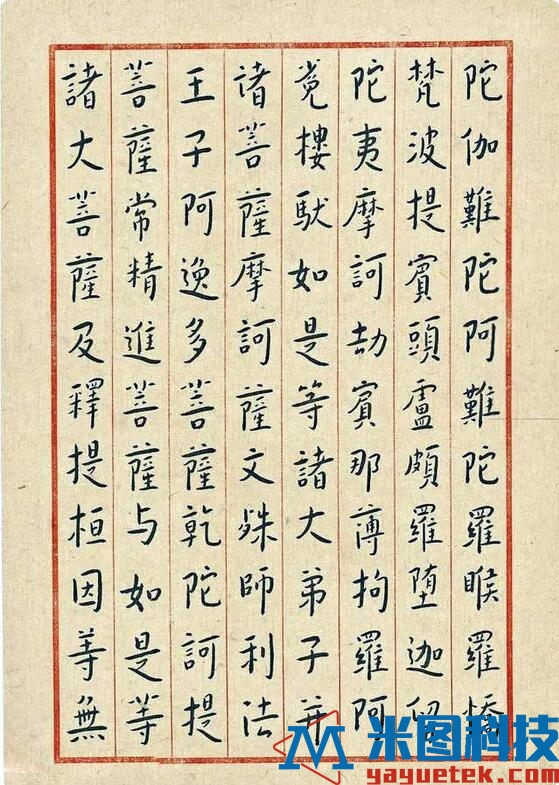 陀伽難陀阿難陀羅睺羅橋
梵波提賓頭盧頗羅堕迦留
陀夷摩訶劫賓那薄拘羅阿
樓馱如是等諸大弟子并
諸菩薩摩訶薩文殊師利法
王子阿逸多菩薩乾陀訶提
菩薩常精進菩薩与如是等
諸大菩薩及釋提桓因等無
米图科技
yayuetek.com